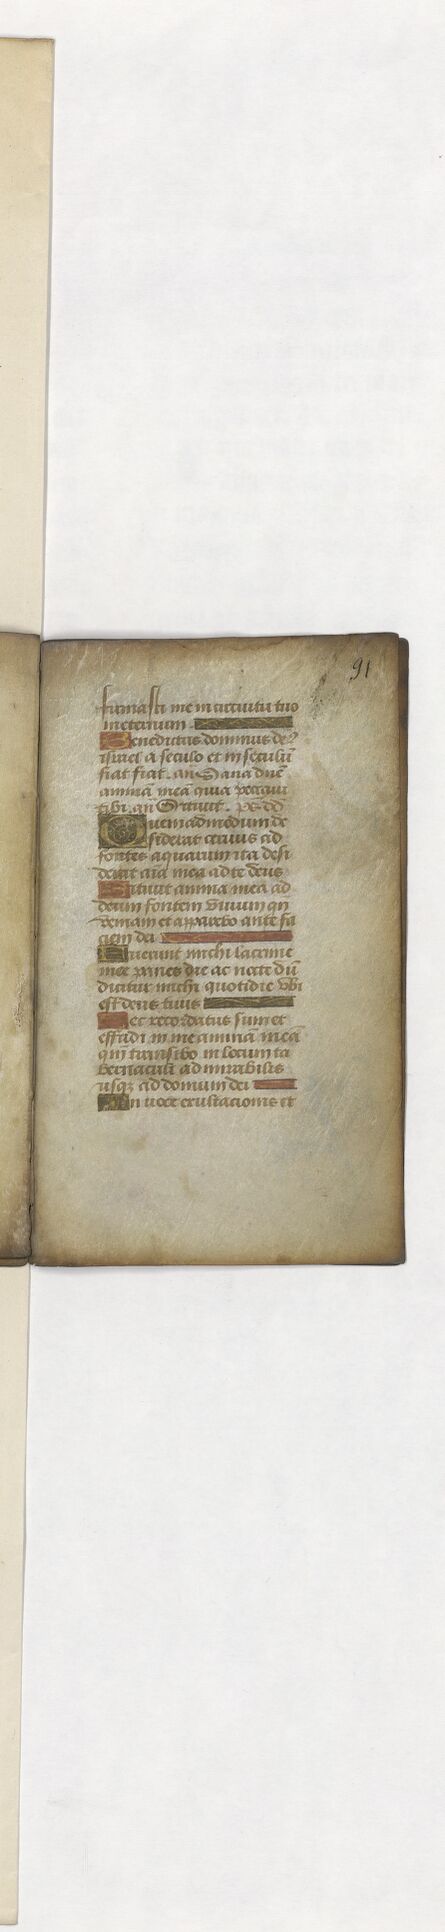 91
firmasti me in circuitu tuo
in eternum
Benedictus dominus de9
israel a seculo et in seculũ
fiat fiat. an Sana dñe
animã meã quia peccaui
tibi. an Sitiuit. ps. dd
Quemadmodum de
siderat ceruus ad
fontes aquarum ita desi
derat aĩa mea ad te deus
Sitiuit anima mea ad
deum fontem viuum qñ
veniam et apparebo ante fa
ciem dei
Fuerunt michi lacrime
mee panes die ac nocte dũ
dicitur michi quotidie vbi
est deus tuus
Hec recordatus sum et
effudi in me animã meã
qm̃ transibo in locum ta
bernaculi admirabilis
usqz ad domum dei
In voce exultacionis et